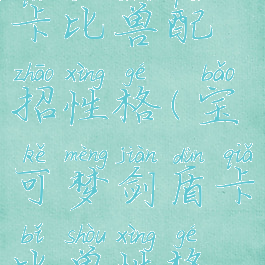 卡比兽配
zhāo xìng gé bǎo
招性格(宝
kě mèng jiàn dùn qiǎ
可梦剑盾卡
bǐ shòu xìng gé
比兽性格